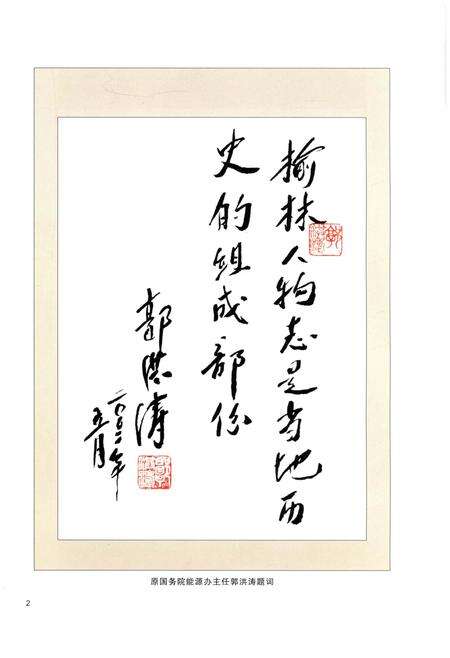 榆林人物志是当地历
史的组成部份
郭洪涛
二〇〇二年
五月
原国务院能源办主任郭洪涛题词
2